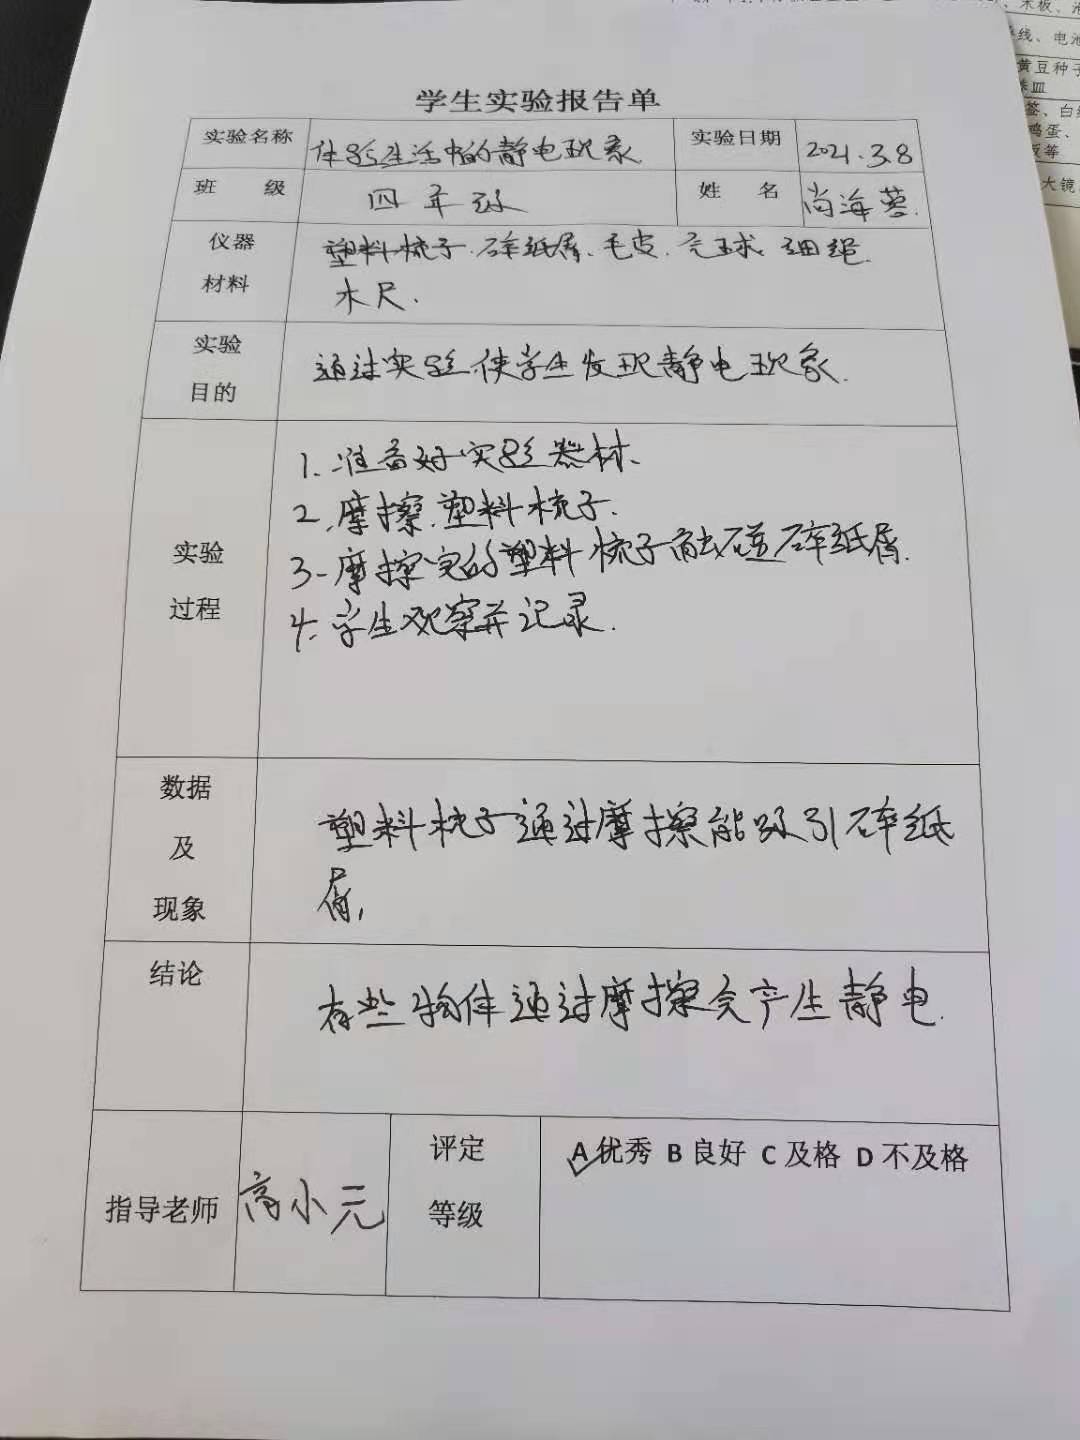 学生实验报告单
实验名称 体验生活中的静电现象 实验日期 2021.3.8
班 级 四年级 姓 名 尚海蓉.
仪器 塑料梳子.碎纸屑、毛皮.气球.细绳.
材料 木尺.
实验
目的
通过实验使学生发现静电现象.
实验
过程
1.准备好实验器材、
2.摩擦.塑料梳子.
3.摩擦完的塑料梳子触碰碎纸屑.
4.学生观察并记录.
数据
及
现象
塑料梳子通过摩擦能吸引碎纸
屑,
结论
有些物件通过摩擦会产生静电.
指导老师 高小元
评定
等级
A 优秀 B 良好 C 及格 D 不及格
木板、
线、电池
黄豆种子
鸡蛋、
大镜